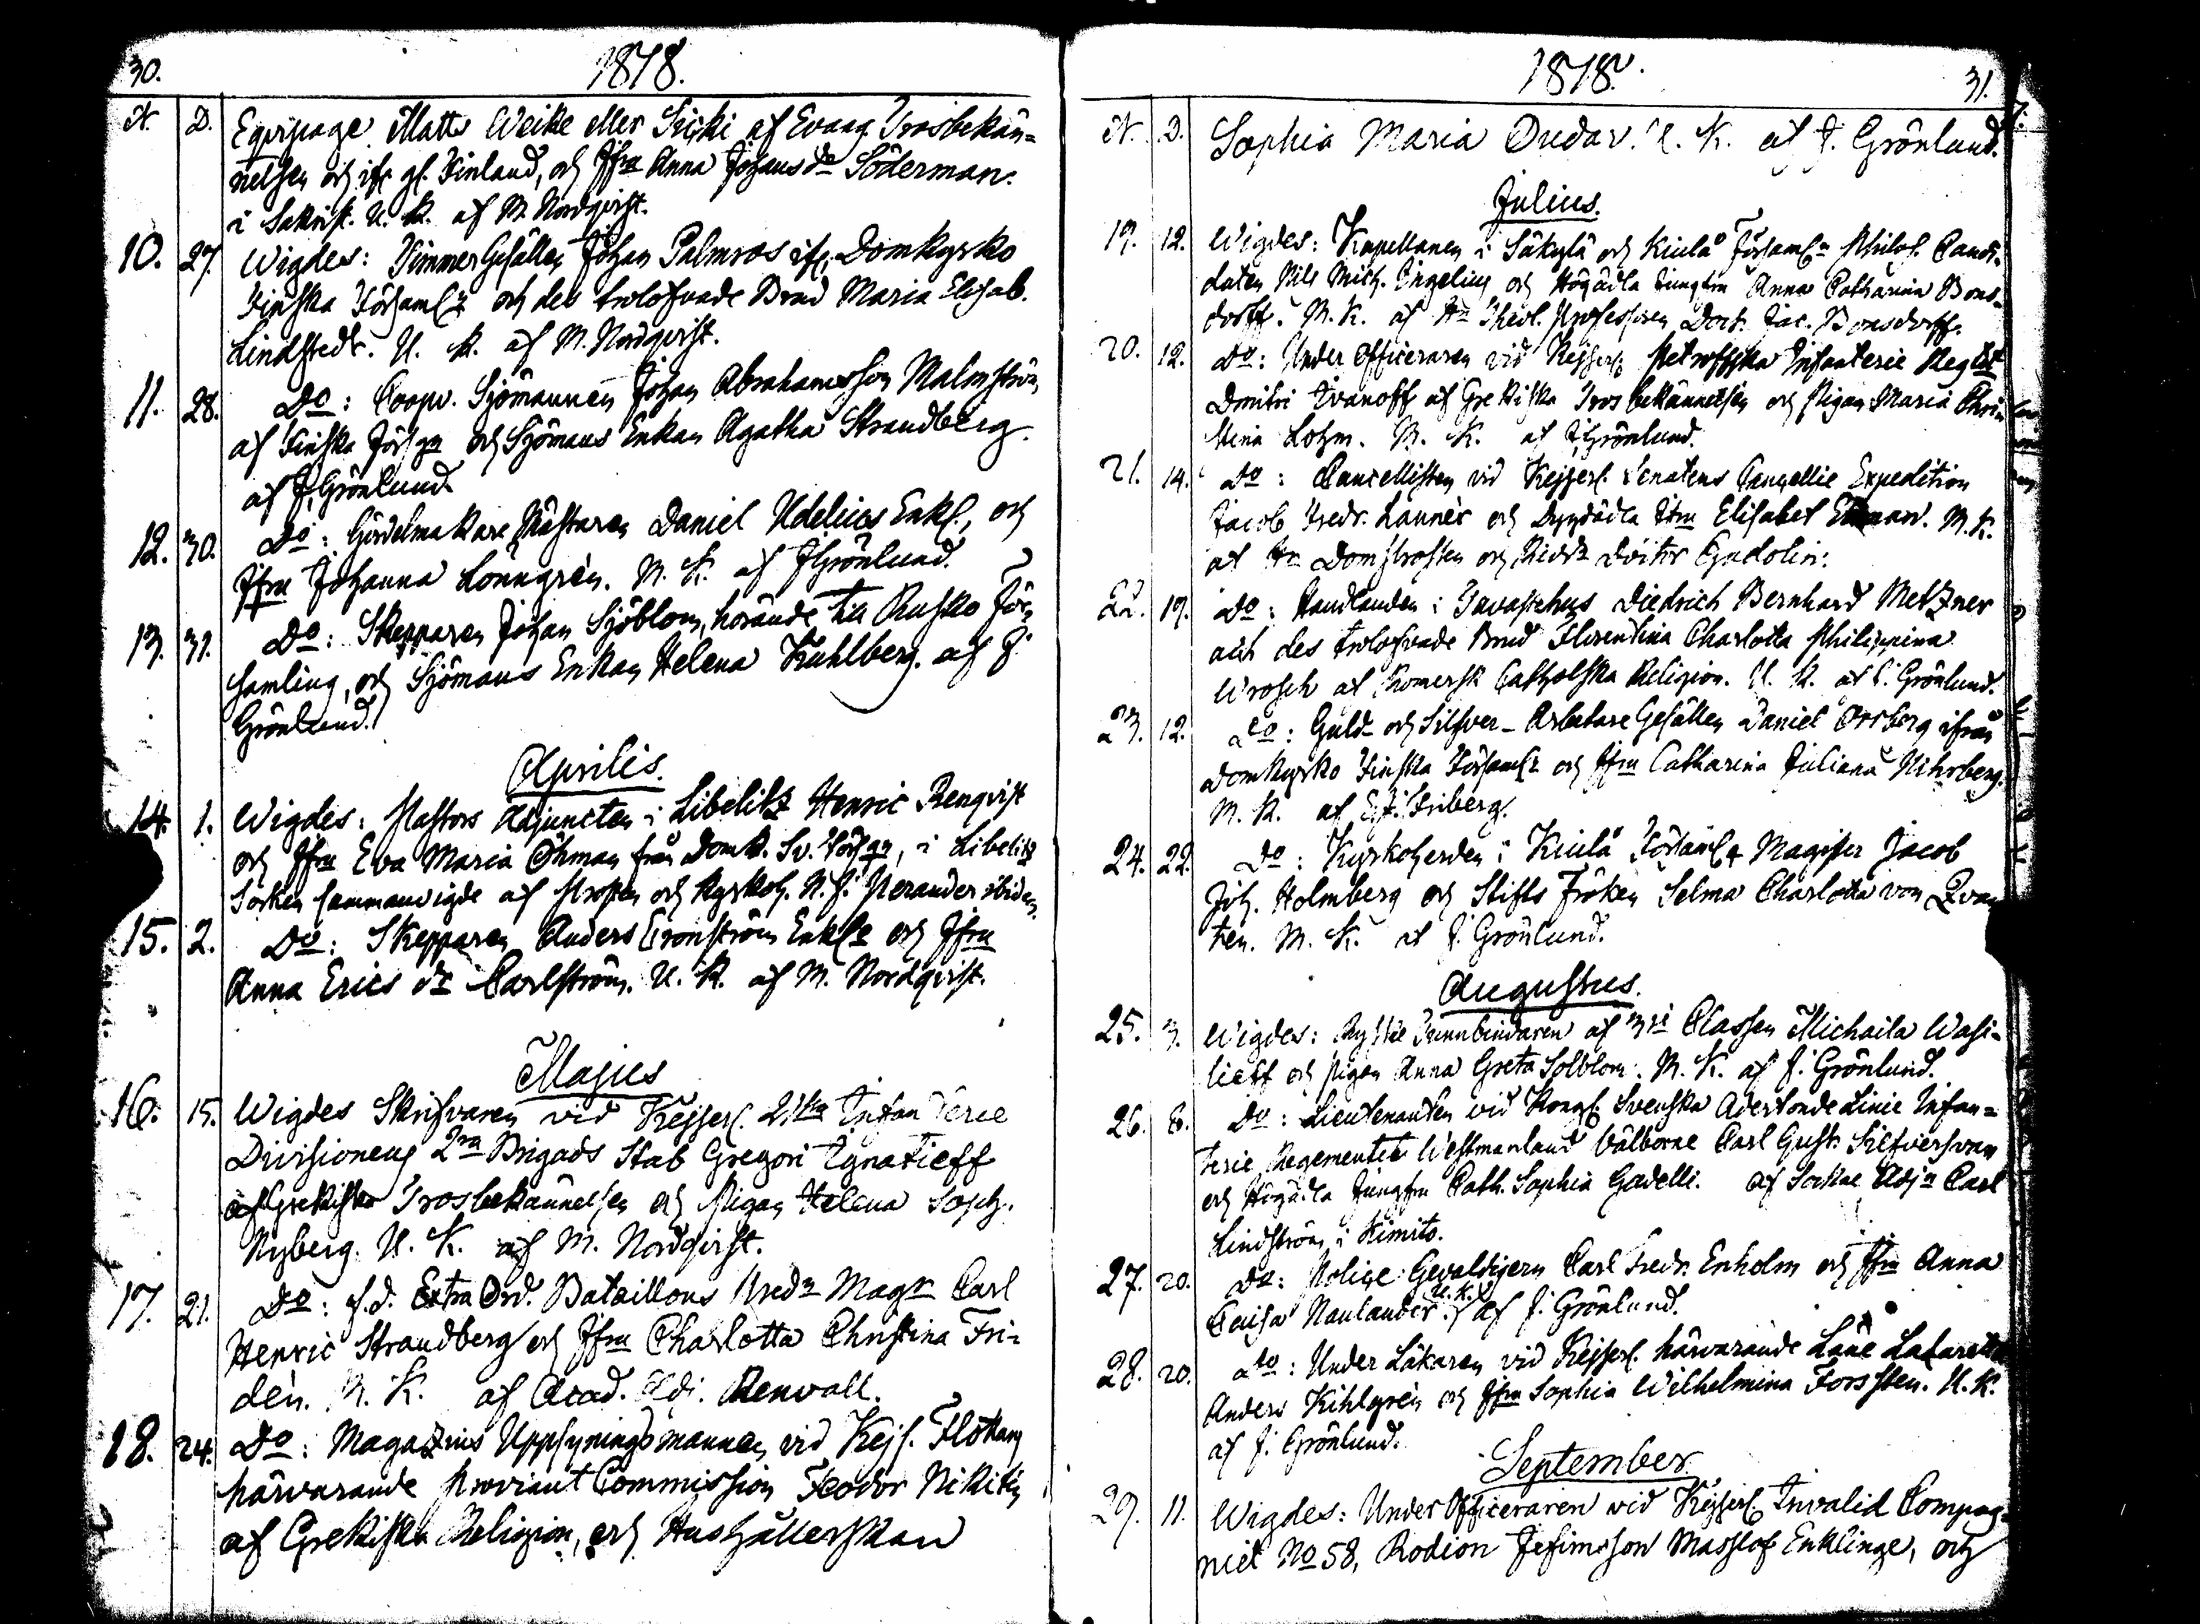 30.
1818.
N. D.
Equipage Matts Weike eller af Evang. Trosbekän-
nelsen och ifr. gl. Finland, och Jfru Anna Johans dr Söderman.
i Sakrist. U. K. af M. Nordqvist.
10. 27. Wigdes: TimmerGesällen Johan Palmros ifr. Domkyrko
Finska Församl. och des trolofvade Brud Maria Elisab.
Lindstedt. U. K. af M. Nordqvist.
11. 28. Do: Coopv. Sjömannen Johan Abrahamsson Malmström
af Finska Förs. och Sjömans Enkan Agatha Strandberg
af J. Grönlund.
12. 30. Do: Gördelmakare Mästaren Daniel Udelius Enkl., och
Jfru Johanna Lönngrén. M. K. af J Grönlund.
13. 31. Do: Skepparen Johan Sjöblom, hörande till Rusko För-
samling, och Sjömans Enkan Helena Kuhlberg. af J.
Grönlund.
Aprilis.
14. 1. Wigdes: Pastors Adjuncten i Libelitz Henric Renqvist
och Jfru Eva Maria Öhman från Domk. Sv. Förs., i Libelitz
Socken sammanvigde af Prosten och Kyrkoh. N. J. Perander ibidem.
15. 2. Do: Skepparen Anders Cronström Enkl. och Jfru
Anna Erics dr Carlström. U. K. af M. Nordqvist.
Majus
16. 15. Wigdes Skrifvaren vid Kejserl. 21sta Infanterie
Divisionens 2ra Brigads Stab Gregori Ignatieff
af Grekiska Trosbekännelsen och Pigan Helena Soph.
Nyberg. U. K. af M. Nordqvist.
17. 21. Do: f.d. Extra Ord. Bataillons Predn Magr Carl
Henric Strandberg och Jfru Charlotta Christina Fri-
dén. M. K. af Acad. Adj. Renvall.
18. 24. Do: Magazins Uppsyningsmannen vid Kejs. Flottans
härvarande Proviant Commission Feodor Nikitin
af Grekiska Religion, och Hushållerskan
1818.
31.
N. D. Sophia Maria U. K. af J. Grönlund.
Julius.
19. 12. Wigdes: Kapellanen i Säkylä och Kiulo Församl. Philos. Candi-
daten Nils Mich. Ingelius och Högädla Jungfru Anna Catharina Bons-
dorff. M. K. af Hr Theol. Professoren Doct. Jac. Bonsdorff.
20. 12. Do: Under Officeraren vid Kejserl. Petroffska Infanterie Regtet
Dmitri Ivanoff af Grekiska Trosbekännelsen och Pigan Maria Chri-
stina Lohm. M. K. af J. Grönlund.
21. 14. Do: Cancellisten vid Kejserl. Senatens Cancellie Expedition
Jacob Fredr. Launér och Dygdädla Jfru Elisabet Ekman. M. K.
af Hr Domprosten och Gadolin.
22. 19. Do: Handlanden i Tavastehus Diedrich Bernhard Metzner
och des trolofvade Brud Florentina Charlotta Philippina
Wrosch af Romersk Catholska Religion. U. K. af J. Grönlund.
23. 12. Do: Guld- och Silfver-Arbetare Gesällen Daniel Orrberg ifrån
Domkyrko Finska Församl. och Jfru Catharina Juliana Nihrberg.
M. K. af Friberg.
24. 22. Do: Kyrkoherden i Kiulo Församl. Magister Jacob
Joh. Holmberg och Stifts Fröken Selma Charlotta von Qvan-
ten. M. K. af J. Grönlund.
Augustus.
25. 3. Wigdes: Ryske Tunnbindaren af 3die Classen Michaila Wasi-
lieff och Pigan Anna Greta Solblom. M. K. af J. Grönlund.
26. 8. Do: Lieutenanten vid Kongl. Svenska Adertonde Linie Infan-
terie Regementet Westmanland Välborne Carl Gust. Silfversvan
och Högädla Jungfru Cath. Sophia Gadelli. af Sockne Adjn Carl
Lindström i Kimito.
27. 20. Do: Police Gevaldigern Carl Fredr. Enholm och Jfru Anna
Caisa Naulander. U. K. af J. Grönlund.
28. 20. Do: Under Läkaren vid Kejserl. härvarande Läne Lazarettet
Anders Kihlgrén och Jfru Sophia Wilhelmina Forssten. U. K.
af J. Grönlund.
September
29. 11. Wigdes: Under Officeraren vid Kejserl. Invalid Compag-
niet No 58, Rodion Jefimsson Massloff Enklinge, och